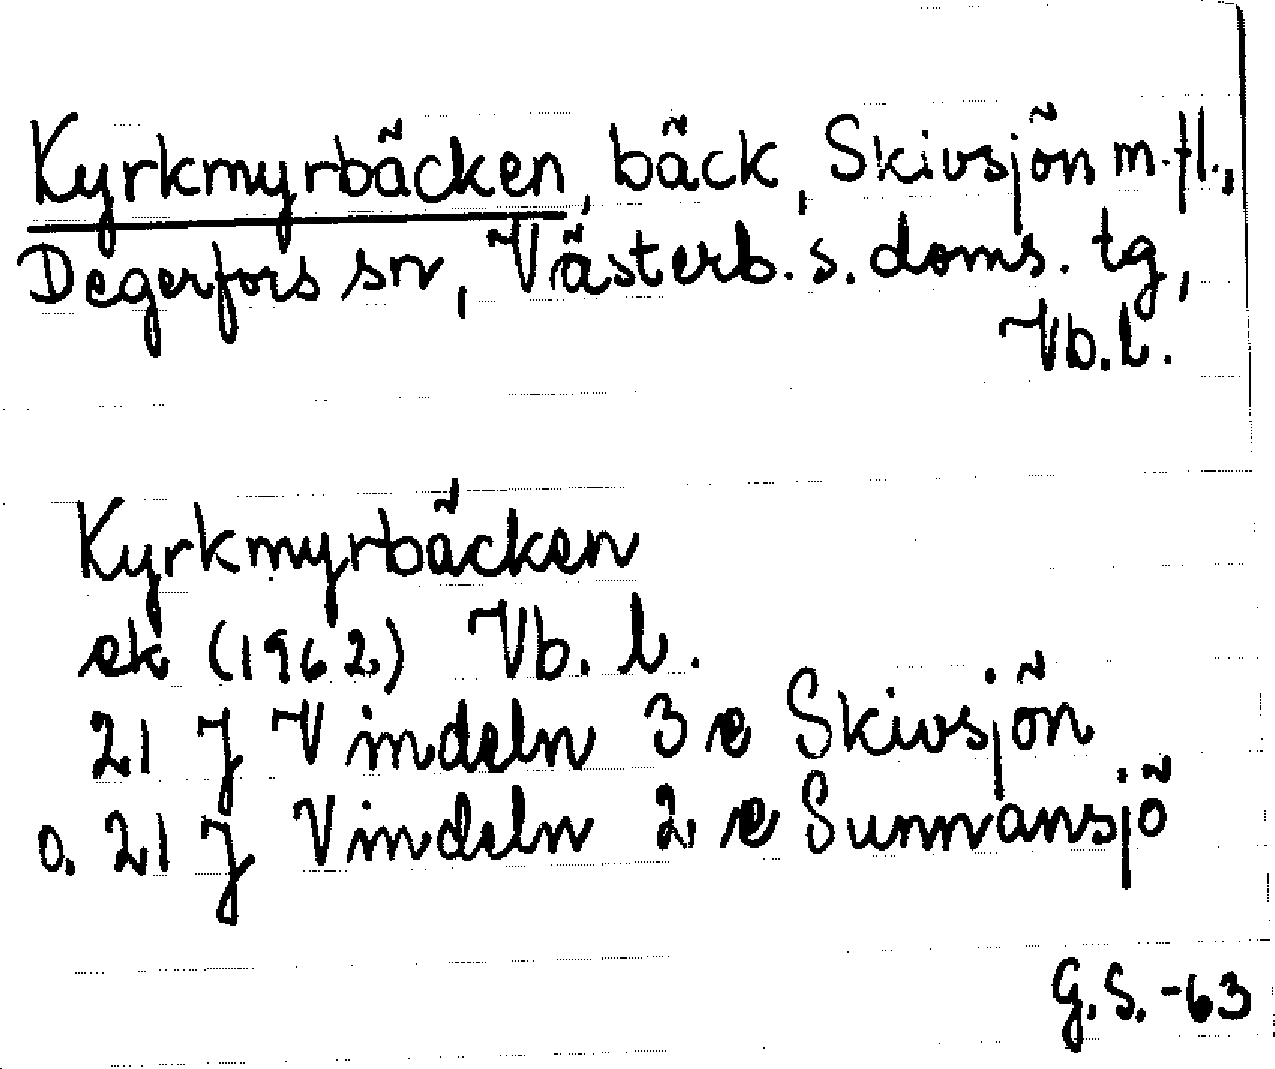 Kyrkmyrbäcken, bäck, Skivsjön m.fl.,
Degerfors sn, Västerb. s. doms. tg,
Vb.l.
Kyrkmyrbäcken
ek (1962) Vb. l.
21 J Vindeln 3 e Skivsjön
o. 21 J Vindeln 2 e Sunnansjö
G.S. -63